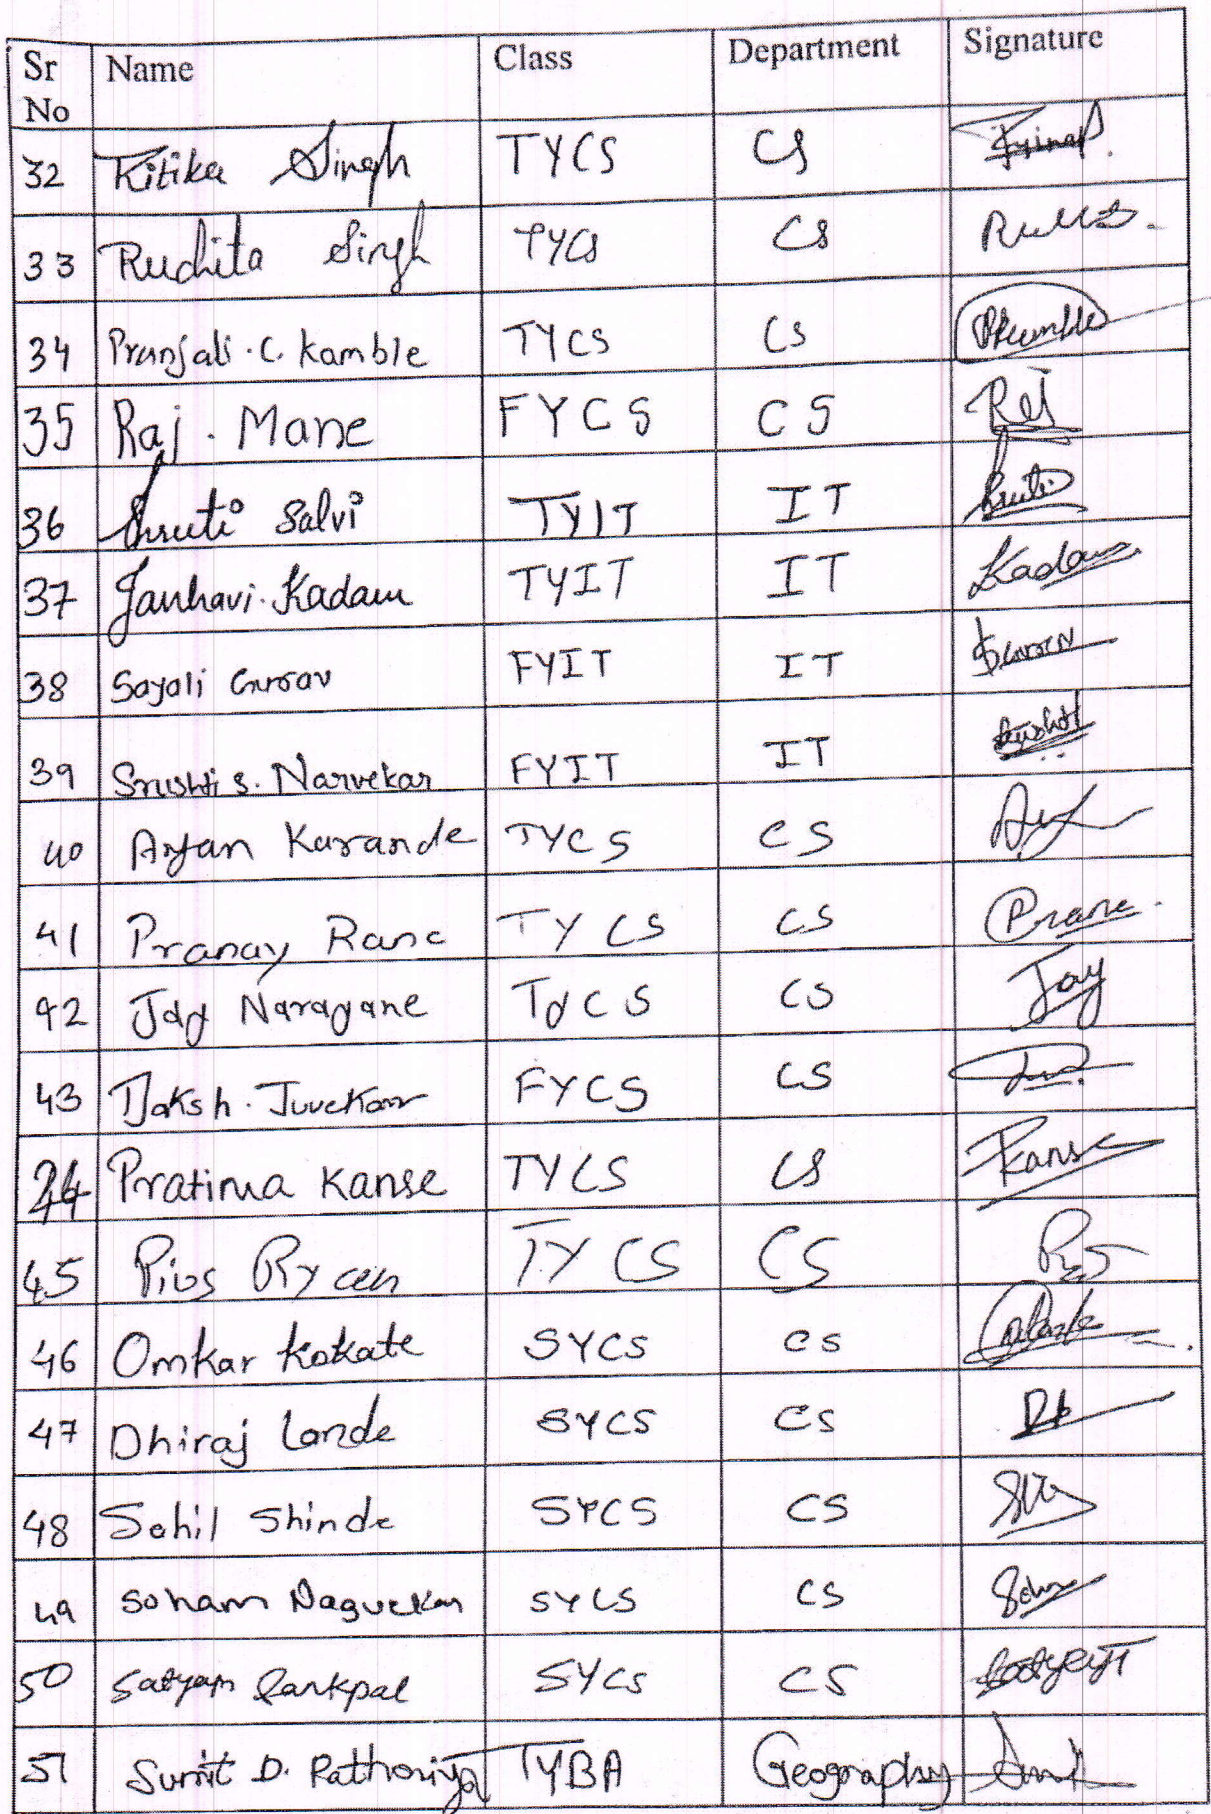 Sr No Name Class Department Signature
32 Kitika Singh TYCS CS
33 Ruchita Singh TYCS CS
34 Pranjali .C. Kamble TYCS CS PKamble
35 Raj . Mane FYCS CS Raj
36 Shruti Salvi TYIT IT Shruti
37 Janhavi . Kadam TYIT IT Kadam
38 Sayali Gurav FYIT IT
39 Srushti S. Narvekar FYIT IT Srushti
40 Aryan Karande TYCS CS
41 Pranay Rane TYCS CS
42 Jay Narayane TYCS CS Jay
43 Daksh . Juvekar FYCS CS
44 Pratima Kanse TYCS CS Kanse
45 Pius Ryan TYCS CS
46 Omkar Kokate SYCS CS
47 Dhiraj Lande SYCS CS
48 Sahil Shinde SYCS CS
49 Soham Nagvekar SYCS CS
50 Satyam Sankpal SYCS CS
51 Sumit D. Pathariya TYBA Geography